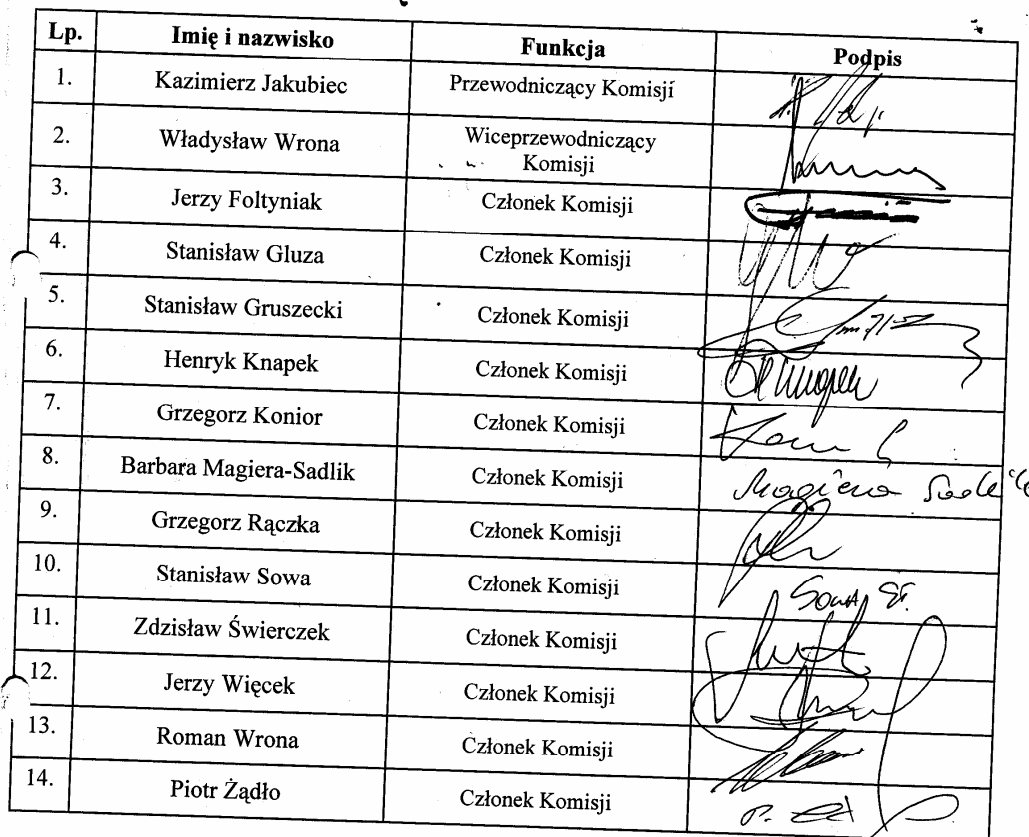 Lp. Imię i nazwisko Funkcja Podpis
1. Kazimierz Jakubiec Przewodniczący Komisji
2. Władysław Wrona Wiceprzewodniczący
Komisji
3. Jerzy Foltyniak Członek Komisji
4. Stanisław Gluza Członek Komisji
5. Stanisław Gruszecki Członek Komisji
6. Henryk Knapek Członek Komisji
7. Grzegorz Konior Członek Komisji
8. Barbara Magiera-Sadlik Członek Komisji Magiera
9. Grzegorz Rączka Członek Komisji
10. Stanisław Sowa Członek Komisji Sowa St.
11. Zdzisław Świerczek Członek Komisji
12. Jerzy Więcek Członek Komisji
13. Roman Wrona Członek Komisji
14. Piotr Żądło Członek Komisji